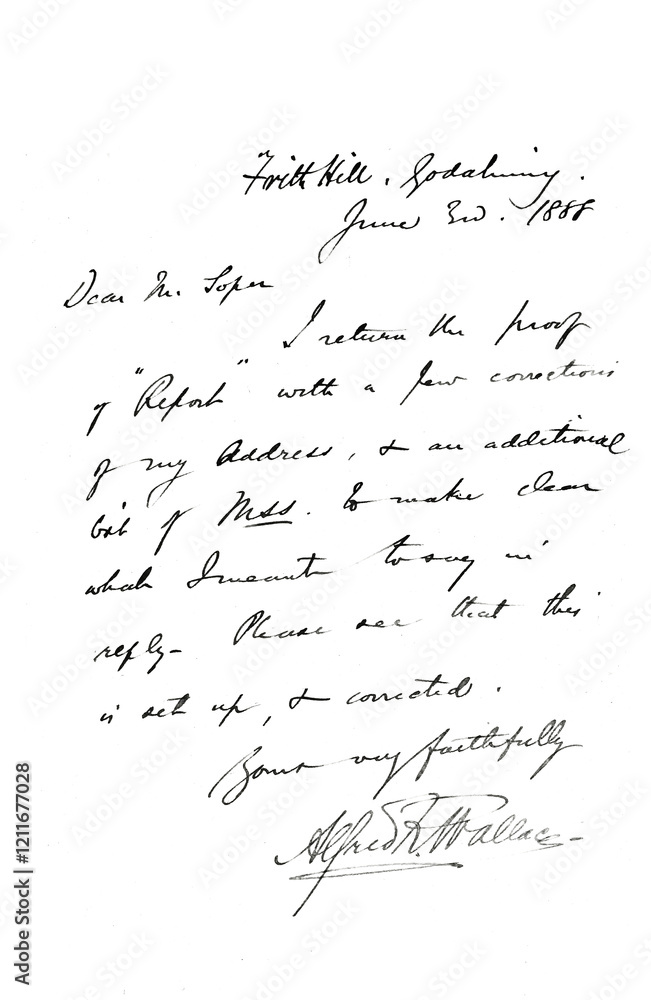 Frith Hill, Godalming.
June 3rd. 1888
Dear Mr. Soper
I return the proof
of "Report" with a few corrections
of my Address, & an additional
bit of MSS. to make clear
what I meant to say in
reply— Please see that this
is set up, & corrected.
Yours very faithfully
Alfred R. Wallace
Adobe Stock | #1211677028